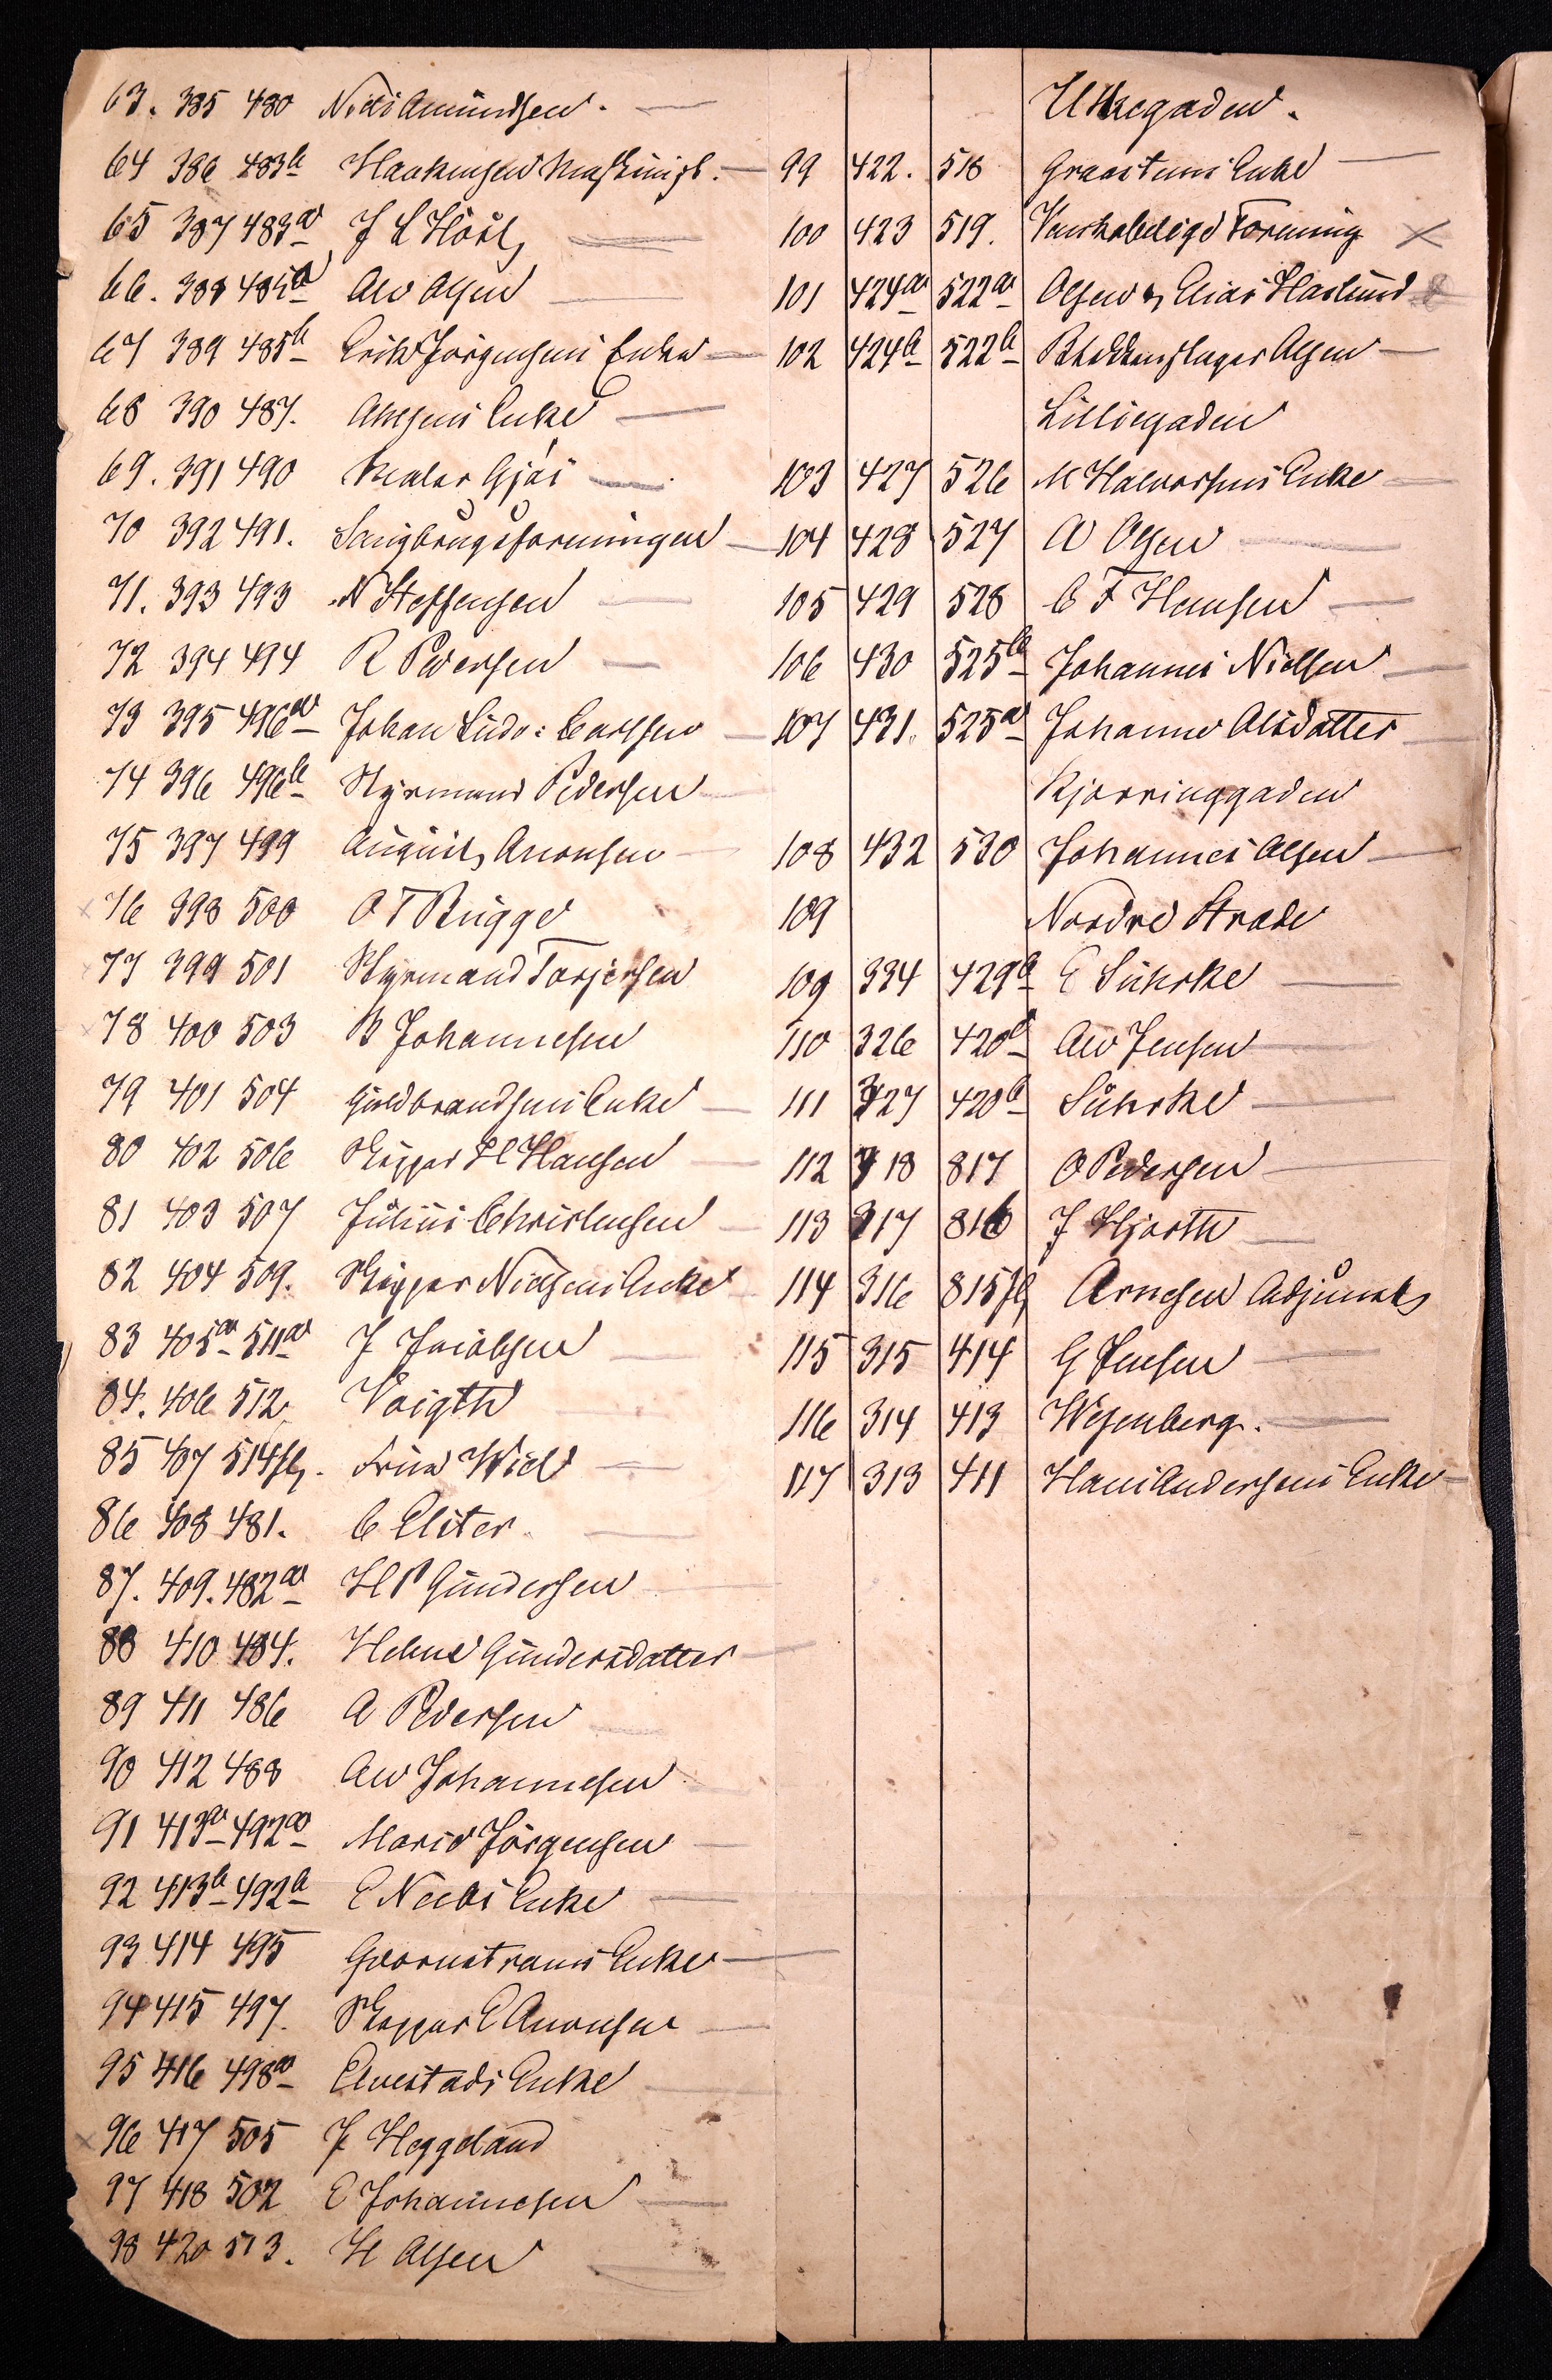 63. 385 480 Niels Amundsen
64 386 483b Haakensen Maskinist.
65 387 483a J L Höst
66. 388 485a Alv Olsen
67 389 485b Erik Jörgensens Enke
68 390 487. Ahlsens Enke
69. 391 490 Maler Gjös
70 392 491. Saugbrugsforeningen
71. 393 493 N Steffensen
72 394 494 R Pedersen
73 395 496a Johan Ludv: Carlsen
74 396 496b Styrmand Pedersen
75 397 499 August Aronsen
76 398 500 O T Bugge
77 399 501 Styrmand Torjersen
78 400 503 B Johannesen
79 401 504 Guldbrandsens Enke
80 402 506 Skipper H Hansen
81 403 507 Julius Christensen
82 404 509. Skipper Nielsens Enke
83 405a 511a J Jacobsen
84. 406 512 Voigth
85 407 514 Frue Wiel
86 408 481. C Elster
87. 409. 482a H P Gundersen
88 410 484. Helene Gundersdatter
89 411 486 A Pedersen
90 412 488 Alv Johannesen
91 413a 492a Marie Jörgensen
92 413b 492b E Neebs Enke
93 414 495 Qvarnstrøms Enke
94 415 497. Skipper E Aronsen
95 416 498a Elvestads Enke
96 417 505 J Heggeland
97 418 502 E Johannesen
98 420 513. H Olsen
Utnegaden.
99 422. 518 Enke
100 423 519. Venskabelige Forening
101 424a 522a Olsen & Elias Haslund
102 424b 522b Blikkenslager Olsen
Lilliegaden
103 427 526 M Halvorsens Enke
104 428 527 A Olsen
105 429 528 C F Hansen
106 430 525b Johannes Nielsen
107 431. 525a Johanne Olsdatter
Kjærringgaden
108 432 530 Johannes Olsen
109 Nordre Strede
109 334 429b E Sührke
110 326 420b Alv Jensen
111 327 420b Sührke
112 318 817 O Pedersen
113 317 816 J Hjorth
114 316 815 Arnesen Adjunct
115 315 414 G Jensen
116 314 413 Wesenberg.
117 313 411 Hans Andersens Enke